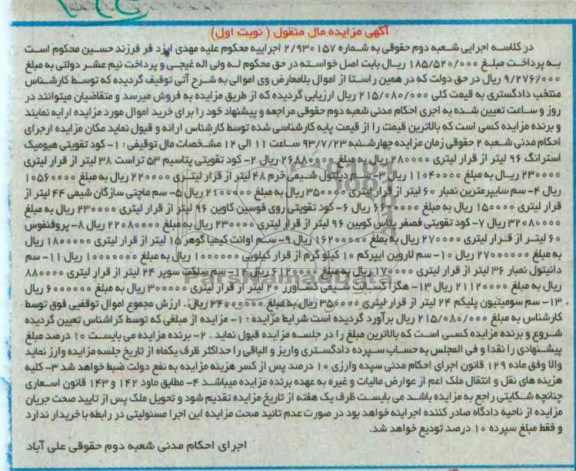 آگهی مزایده مال منقول ( نوبت اول)
در کلاسه اجرایی شعبه دوم حقوقی به شماره ۲/۹۳۰۱۵۷ اجراییه محکوم علیه مهدی ایزد فر فرزند حسین محکوم است
به پرداخت مبلغ ۱۸۵/۵۲۰/۰۰۰ ریال بابت اصل خواسته در حق محکوم له ولی اله غیچی و پرداخت نیم عشر دولتی به مبلغ
۹/۲۷۶/۰۰۰ ریال در حق دولت که در همین راستا از اموال بلامعارض وی اموالی به شرح آتی توقیف گردیده که توسط کارشناس
منتخب دادگستری به قیمت کلی ۲۱۵/۰۸۰/۰۰۰ ریال ارزیابی گردیده که از طریق مزایده به فروش میرسد و متقاضیان میتوانند در
روز و ساعت تعیین شده به اجری احکام مدنی شعبه دوم حقوقی مراجعه و پیشنهاد خود را برای خرید اموال مورد مزایده ارایه نمایند
و برنده مزایده کسی است که بالاترین قیمت را از قیمت پایه کارشناسی شده توسط کارشناس ارائه و قبول نماید مکان مزایده ارجرای
احکام مدنی شعبه ۲ حقوقی زمان مزایده چهارشنبه ۹۳/۷/۲۳ ساعت ۱۱ الی ۱۲ مشخصات مال توقیفی : ۱- کود تقویتی هیومیک
استرانگ ۹۶ لیتر از قرار لیتری ۲۸۰۰۰۰ ریال به مبلغ ۲۶۸۸۰۰۰۰ ریال ۲- کود تقویتی پتاسیم ۵۳ تراست ۳۸ لیتر از قرار لیتری
۲۳۰۰۰۰ ریال به مبلغ ۱۱۰۴۰۰۰۰ ریال ۳- سم دیتلول شیمی خرم ۴۸ لیتر از قرار لیتری ۲۲۰۰۰۰ ریال به مبلغ ۱۰۵۶۰۰۰۰
ریال ۴- سم سایپرمترین نمبار ۶۰ لیتر از قرار لیتری ۳۵۰۰۰۰ ریال به مبلغ ۲۱۰۰۰۰۰۰ ریال ۵- سم ماچتی سازگان شیمی ۴۴ لیتر از
قرار لیتری ۱۵۰۰۰۰ ریال به مبلغ ۶۶۰۰۰۰۰ ریال ۶- کود تقویتی روی فوسین کاوین ۹۶ لیتر از قرار لیتری ۲۳۰۰۰۰ ریال به مبلغ
۳۲۰۸۰۰۰۰ ریال ۷- کود تقویتی فصفر پلاس کوبین ۹۶ لیتر از قرار لیتری ۲۳۰۰۰۰ ریال به مبلغ ۲۲۰۸۰۰۰۰ ریال ۸- پروفنفوس
۶۰ لیتر از قرار لیتری ۲۷۰۰۰۰ ریال به مبلغ ۱۶۲۰۰۰۰۰ ریال ۹- سم اوانت کیمیا گوهر ۱۵ لیتر از قرار لیتری ۱۸۰۰۰۰۰ ریال
به مبلغ ۲۷۰۰۰۰۰۰ ریال ۱۰- سم لاروین ایپرکم ۱۰ کیلو گرم از قرار کیلویی ۱۰۰۰۰۰۰ ریال به مبلغ ۱۰۰۰۰۰۰۰ ریال ۱۱- سم
دانیتول نمبار ۳۶ لیتر از قرار لیتری ۱۷۰۰۰۰ ریال به مبلغ ۶۱۲۰۰۰۰ ریال ۱۲- سم سلکت سوپر ۲۴ لیتر از قرار لیتری ۸۸۰۰۰۰
ریال به مبلغ ۲۱۱۲۰۰۰۰ ریال ۱۳- هگزاکسات شیمی کشاورز ۲۰ لیتر از قرار لیتری ۳۰۰۰۰۰ ریال به مبلغ ۶۰۰۰۰۰۰ ریال
۱۳- سم سومیتیون پلیکم ۲۴ لیتر از قرار لیتری ۳۵۰۰۰۰ ریال به مبلغ ریال. ارزش مجموع اموال توقفیی فوق توسط
کارشناس به مبلغ ۲۱۵/۰۸۰/۰۰۰ ریال برآورد گردیده است شرایط مزایده : ۱- مزایده از مبلغی که توسط کراشناس تعیین گردیده
شروع و برنده مزایده کسی است که بالاترین مبلغ را در جلسه مزایده قبول نماید. ۲- برنده مزایده می بایست ۱۰ درصد مبلغ
پیشنهادی را نقدا و فی المجلس به حساب سپرده دادگستری واریز و الباقی را حداکثر ظرف یکماه از تاریخ جلسه مزایده وارز نماید
والا وفق ماده ۱۲۹ قانون اجرای احکام مدنی سپده وارزی ۱۰ درصد پس از کسر هزینه مزایده به نفع دولت ضبط خواهد شد ۳- کلیه
هزینه های نقل و انتقال ملک اعم از عوارض مالیات و غیره به عهده برنده مزایده میباشد ۴- مطابق ماود ۱۴۲ و ۱۴۳ قانون اسعاری
چنانچه شکایتی راجع به مزایده باشد می بایست ظرف یک هفته از تاریخ مزایده تقدیم شود و تحویل ملک پس از تایید صحت جریان
مزایده از ناحیه دادگاه صادر کننده اجراینه خواهد بود در صورت عدم تائید صحت مزایده این اجرا مسئولیتی در رابطه با خریدار ندارد
و فقط مبلغ سپرده ۱۰ درصد تودیع خواهد شد.
اجرای احکام مدنی شعبه دوم حقوقی علی آباد